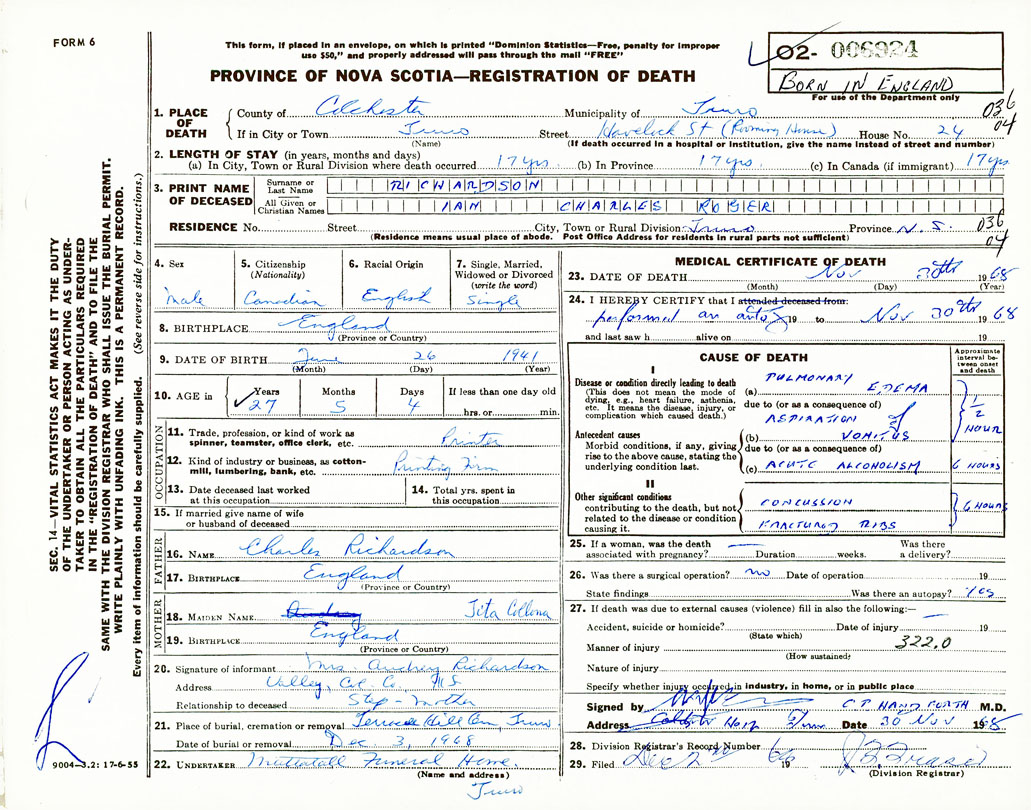 FORM 6
This form, if placed in an envelope, on which is printed "Dominion Statistics—Free, penalty for improper
use $50," and properly addressed will pass through the mail "FREE"
PROVINCE OF NOVA SCOTIA—REGISTRATION OF DEATH
02- 006924
BORN IN ENGLAND
For use of the Department only
036
04
1. PLACE OF DEATH
County of Colchester Municipality of Truro
If in City or Town Truro Street Havelock St (Rooming House) House No. 24
(Name) (If death occurred in a hospital or institution, give the name instead of street and number)
2. LENGTH OF STAY (in years, months and days)
(a) In City, Town or Rural Division where death occurred 17 yrs. (b) In Province 17 yrs. (c) In Canada (if immigrant) 17 yrs
3. PRINT NAME OF DECEASED
Surname or Last Name RICHARDSON
All Given or Christian Names IAN CHARLES ROGER
RESIDENCE No. Street City, Town or Rural Division Truro Province N.S.
036
04
(Residence means usual place of abode. Post Office Address for residents in rural parts not sufficient)
4. Sex
Male
5. Citizenship
(Nationality)
Canadian
6. Racial Origin
English
7. Single, Married,
Widowed or Divorced
(write the word)
Single
8. BIRTHPLACE England
(Province or Country)
9. DATE OF BIRTH June 26 1941
(Month) (Day) (Year)
10. AGE in
Years Months Days If less than one day old
27 5 4 hrs. or min.
OCCUPATION
11. Trade, profession, or kind of work as
spinner, teamster, office clerk, etc. Printer
12. Kind of industry or business, as cotton-
mill, lumbering, bank, etc. Printing Firm
13. Date deceased last worked
at this occupation
14. Total yrs. spent in
this occupation
15. If married give name of wife
or husband of deceased
FATHER
16. NAME Charles Richardson
17. BIRTHPLACE England
(Province or Country)
MOTHER
18. MAIDEN NAME Audrey Tita
19. BIRTHPLACE England
(Province or Country)
20. Signature of informant Mrs. Audrey Richardson
Address Valley, Col. Co., N.S.
Relationship to deceased Step-Mother
21. Place of burial, cremation or removal Terrace Hill Cem, Truro
Date of burial or removal Dec 3, 1968
22. UNDERTAKER Mattatall Funeral Home,
(Name and address)
Truro
MEDICAL CERTIFICATE OF DEATH
23. DATE OF DEATH Nov 30th 1968
(Month) (Day) (Year)
24. I HEREBY CERTIFY that I attended deceased from:
performed an 19 to Nov 30th 1968
and last saw h alive on 19
CAUSE OF DEATH
Approximate
interval be-
tween onset
and death
I
Disease or condition directly leading to death
(This does not mean the mode of
dying, e.g., heart failure, asthenia,
etc. It means the disease, injury, or
complication which caused death.)
(a) PULMONARY EDEMA
due to (or as a consequence of)
ASPIRATION of
(b) VOMITUS
1/2 HOUR
Antecedent causes
Morbid conditions, if any, giving
rise to the above cause, stating the
underlying condition last.
due to (or as a consequence of)
(c) ACUTE ALCOHOLISM 6 HOURS
II
Other significant conditions
contributing to the death, but not
related to the disease or condition
causing it.
CONCUSSION
FRACTURED RIBS
6 HOURS
25. If a woman, was the death
associated with pregnancy? — Duration weeks. Was there
a delivery?
26. Was there a surgical operation? no Date of operation 19
State findings Was there an autopsy? Yes
27. If death was due to external causes (violence) fill in also the following:—
Accident, suicide or homicide? Date of injury 19
(State which)
Manner of injury 322.0
(How sustained)
Nature of injury
Specify whether injury occurred in industry, in home, or in public place
Signed by C.P. HANDFORTH M.D.
Address Truro Date 30 Nov 1968
28. Division Registrar's Record Number
29. Filed Dec 2 1968
(Division Registrar)
SEC. 14—VITAL STATISTICS ACT MAKES IT THE DUTY
OF THE UNDERTAKER OR PERSON ACTING AS UNDER-
TAKER TO OBTAIN ALL THE PARTICULARS REQUIRED
IN THE "REGISTRATION OF DEATH" AND TO FILE THE
SAME WITH THE DIVISION REGISTRAR WHO SHALL ISSUE THE BURIAL PERMIT.
WRITE PLAINLY WITH UNFADING INK. THIS IS A PERMANENT RECORD.
Every item of information should be carefully supplied. (See reverse side for instructions.)
9004-3.2: 17-6-55